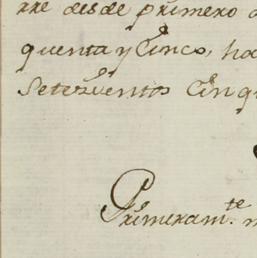 rre desde primero
quenta y Cinco, ha
Setezientos Cinq
Primeram.te